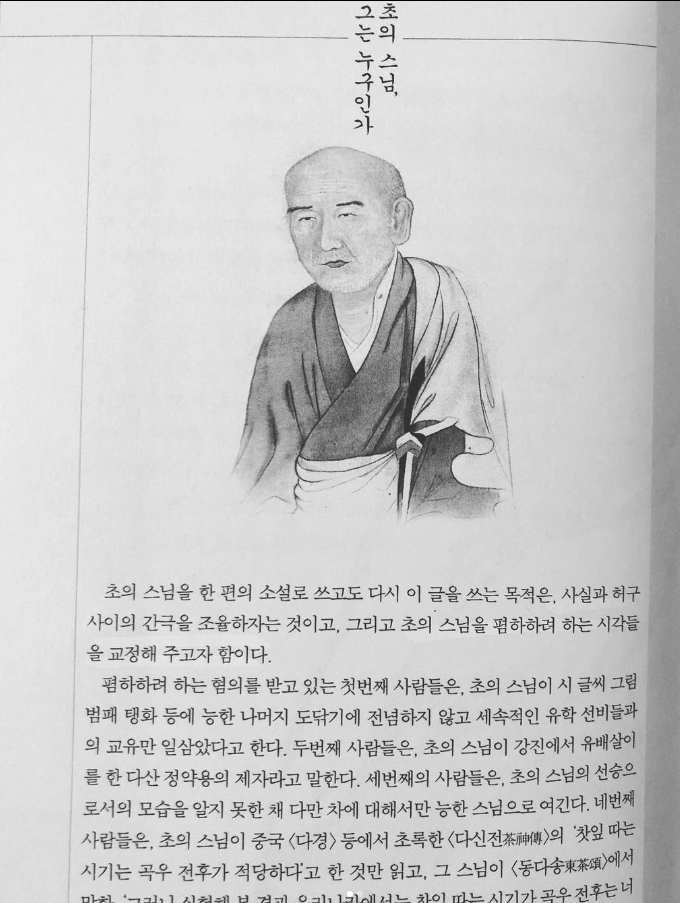 초의 스님,
그는 누구인가
초의 스님을 한 편의 소설로 쓰고도 다시 이 글을 쓰는 목적은, 사실과 허구
사이의 간극을 조율하자는 것이고, 그리고 초의 스님을 폄하하려 하는 시각들
을 교정해 주고자 함이다.
폄하하려 하는 혐의를 받고 있는 첫번째 사람들은, 초의 스님이 시 글씨 그림
범패 탱화 등에 능한 나머지 도닦기에 전념하지 않고 세속적인 유학 선비들과
의 교유만 일삼았다고 한다. 두번째 사람들은, 초의 스님이 강진에서 유배살이
를 한 다산 정약용의 제자라고 말한다. 세번째의 사람들은, 초의 스님의 선승으
로서의 모습을 알지 못한 채 다만 차에 대해서만 능한 스님으로 여긴다. 네번째
사람들은, 초의 스님이 중국 〈다경〉 등에서 초록한 〈다신전茶神傳〉의 '찻잎 따는
시기는 곡우 전후가 적당하다'고 한 것만 읽고, 그 스님이 〈동다송東茶頌〉에서
찻잎 따는 시기가 곡우 전후는 너